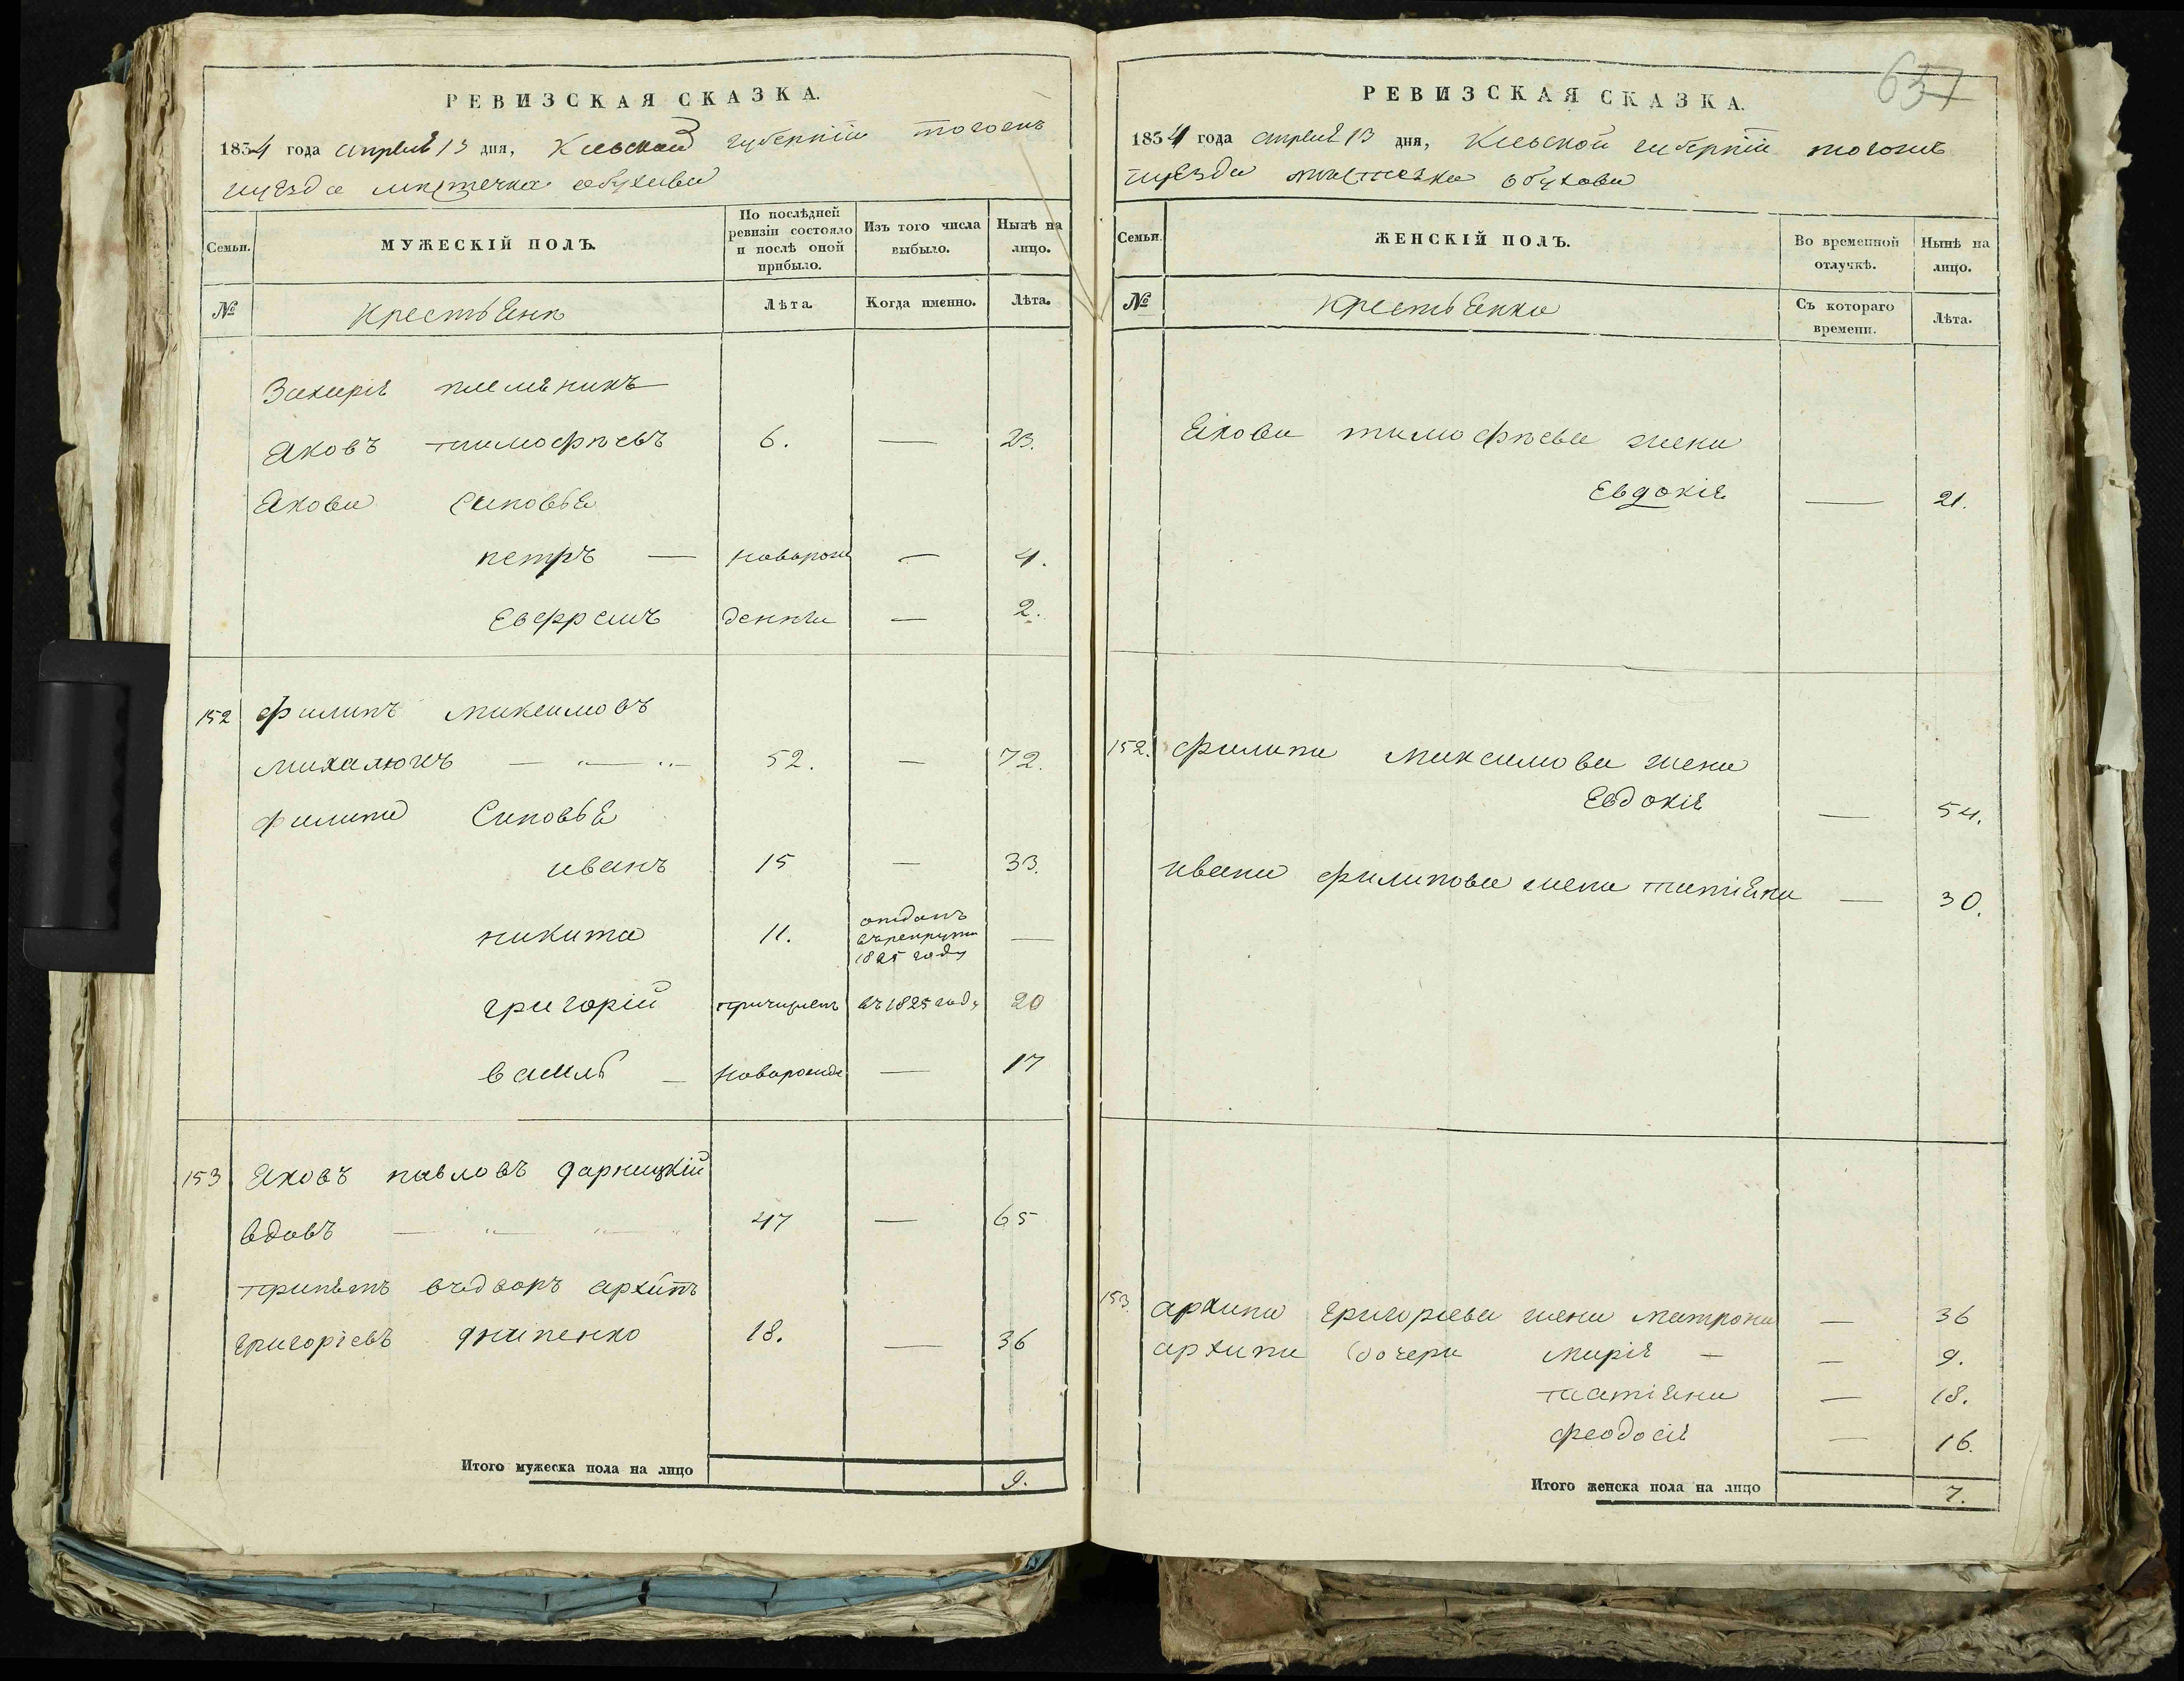 РЕВИЗСКАЯ СКАЗКА.
1834 года апреля 13 дня, Киевской губерніи тогожъ
уезда местечка обухова
Семьи. МУЖЕСКІЙ ПОЛЪ. По послѣдней ревизіи состояло и послѣ оной прибыло. Изъ того числа выбыло. Нынѣ на лицо.
№ крестьяне Лѣта. Когда именно. Лѣта.
Захаріи племеникъ
Яковъ тимофѣевъ 6. — 23.
Якова синовья
петръ — новорож — 4.
Евфремъ денны — 2.
152 Филипъ максимовъ
михалючъ — 52. — 72.
Филипа Синовья
иванъ 15 — 33.
никита 11. отданъ в рекруты 1825 году —
григорій причислен въ 1825 году 20
василь — новорожде — 17
153 Яковъ павловъ дарницкій
вдовъ — 47 — 65
принятъ въ дворъ архипъ
григоріевъ днипенко 18. — 36
Итого мужеска пола на лицо 9.
637
РЕВИЗСКАЯ СКАЗКА.
1834 года апреля 13 дня, Киевской губерніи тогожъ
уезда местечка обухова
Семьи. ЖЕНСКІЙ ПОЛЪ. Во временной отлучкѣ. Нынѣ на лицо.
№ крестьянки Съ котораго времени. Лѣта.
Якова тимофѣева жена
Евдокія — 21.
152. Филипа максимова жена
Евдокія — 54.
ивана филипова жена татіяна — 30.
153. архипа григориева жена матрона — 36
архипа дочери марія — — 9.
татіяна — 18.
феодосія — 16.
Итого женска пола на лицо 7.